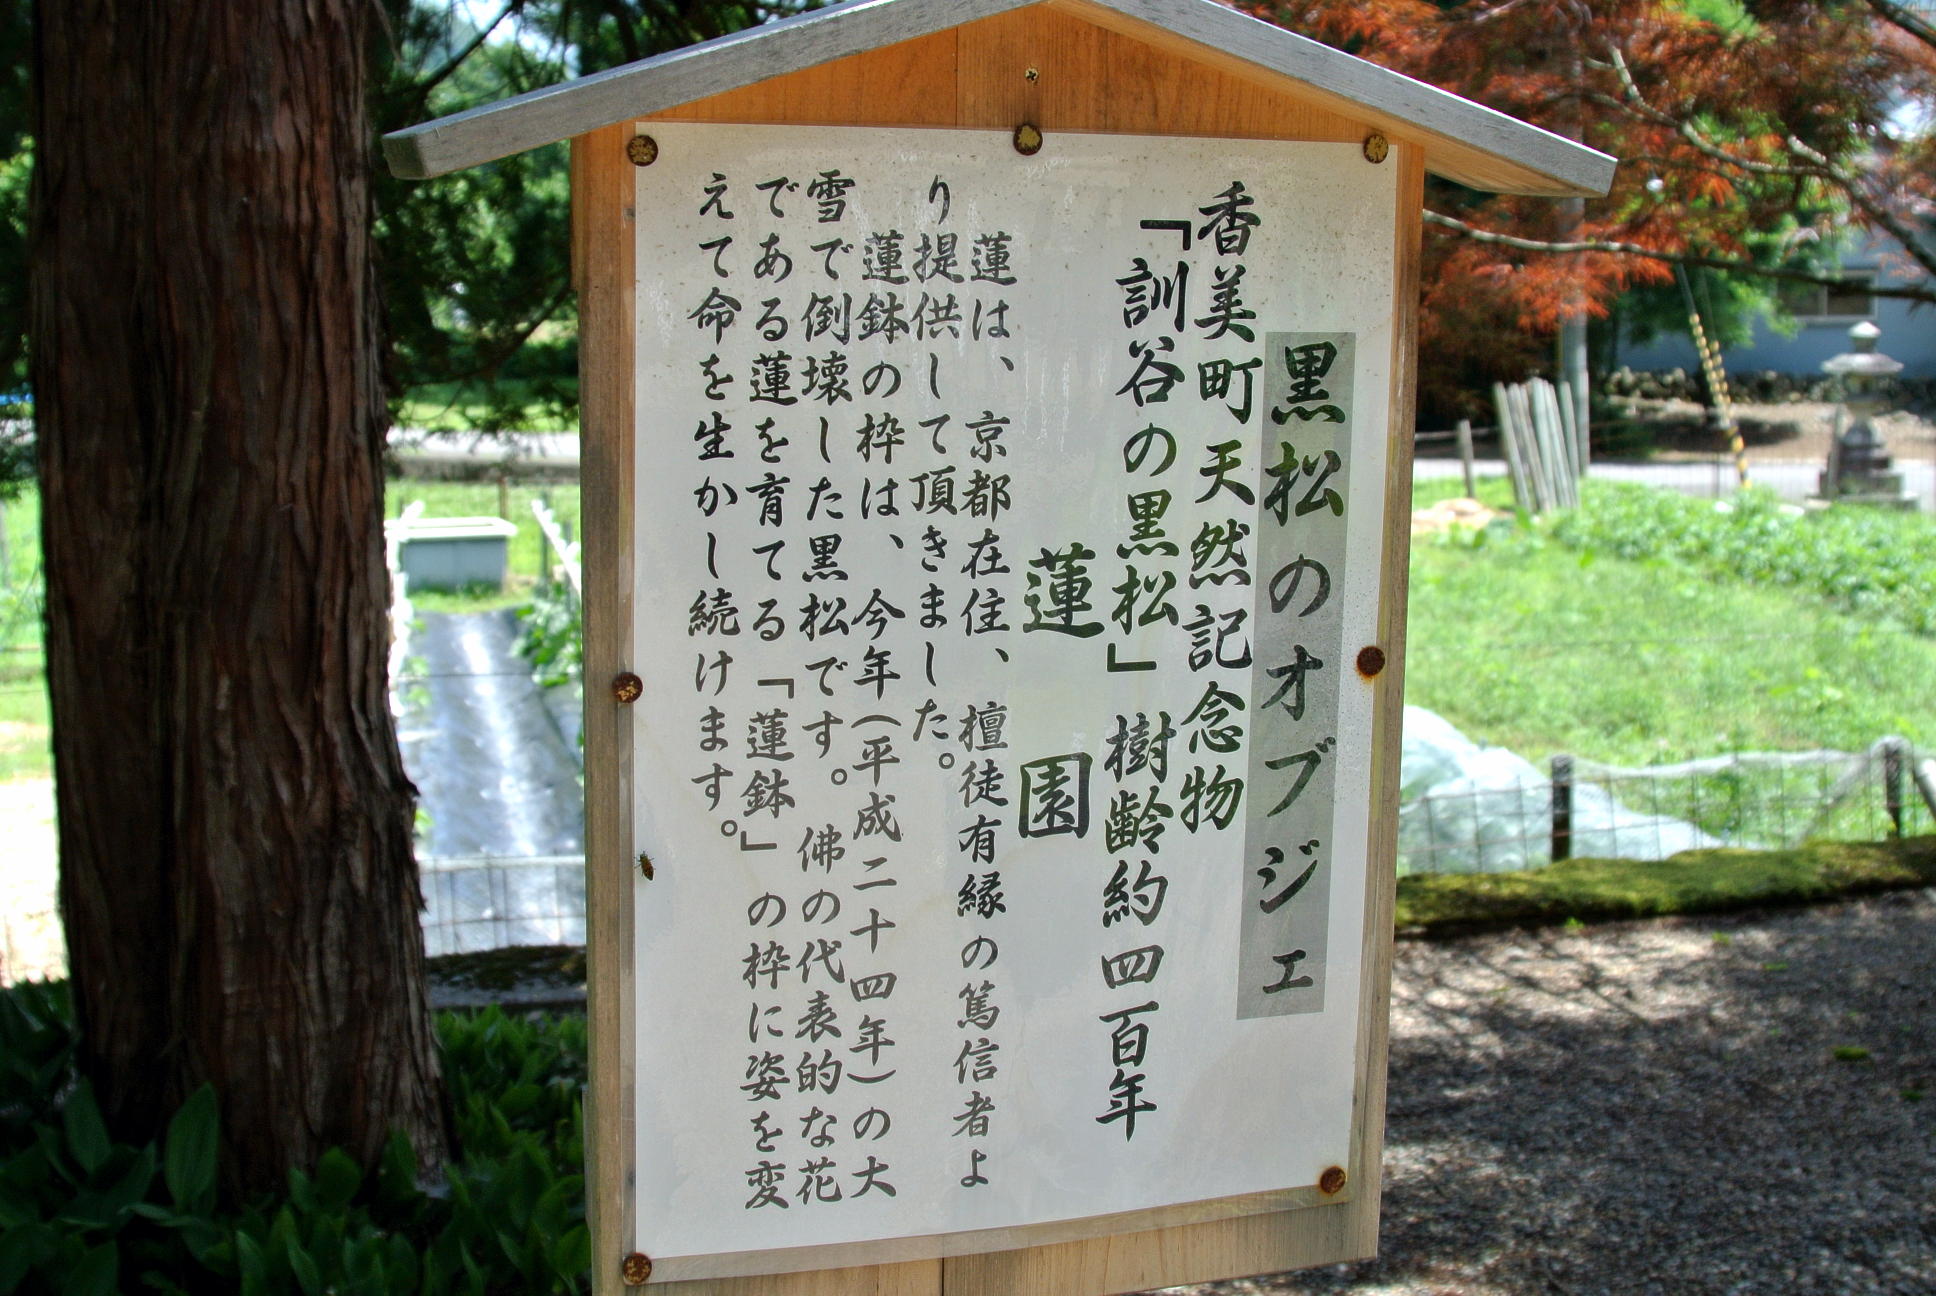 黒松のオブジェ
香美町天然記念物
「訓谷の黒松」樹齢約四百年
蓮園
蓮は、京都在住、檀徒有縁の篤信者よ
り提供して頂きました。
蓮鉢の枠は、今年(平成二十四年)の大
雪で倒壊した黒松です。佛の代表的な花
である蓮を育てる「蓮鉢」の枠に姿を変
えて命を生かし続けます。